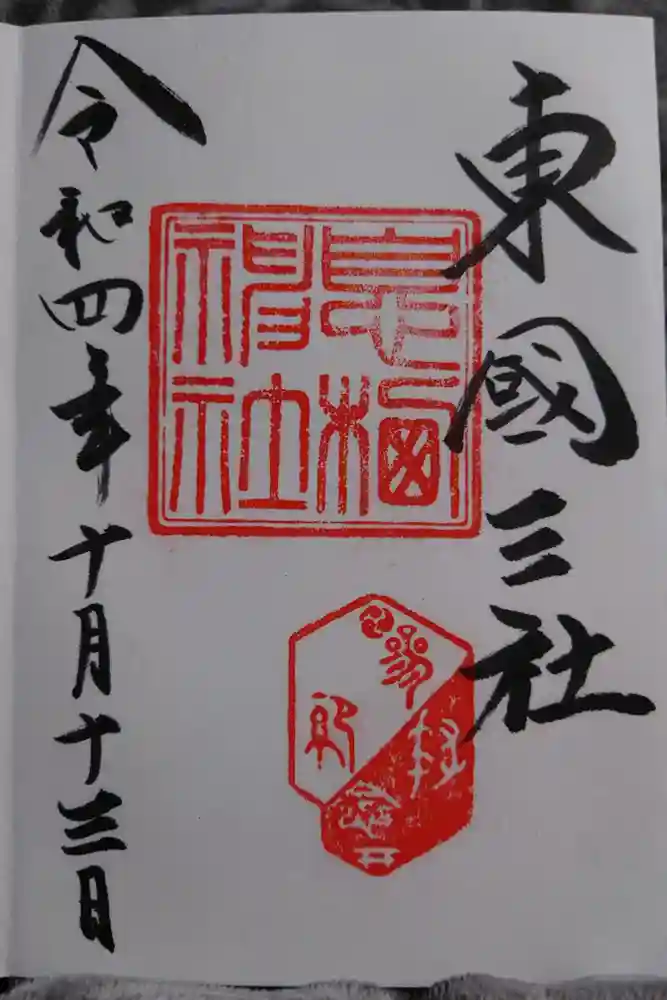 東國三社
息栖
神社
令和四年十月十三日